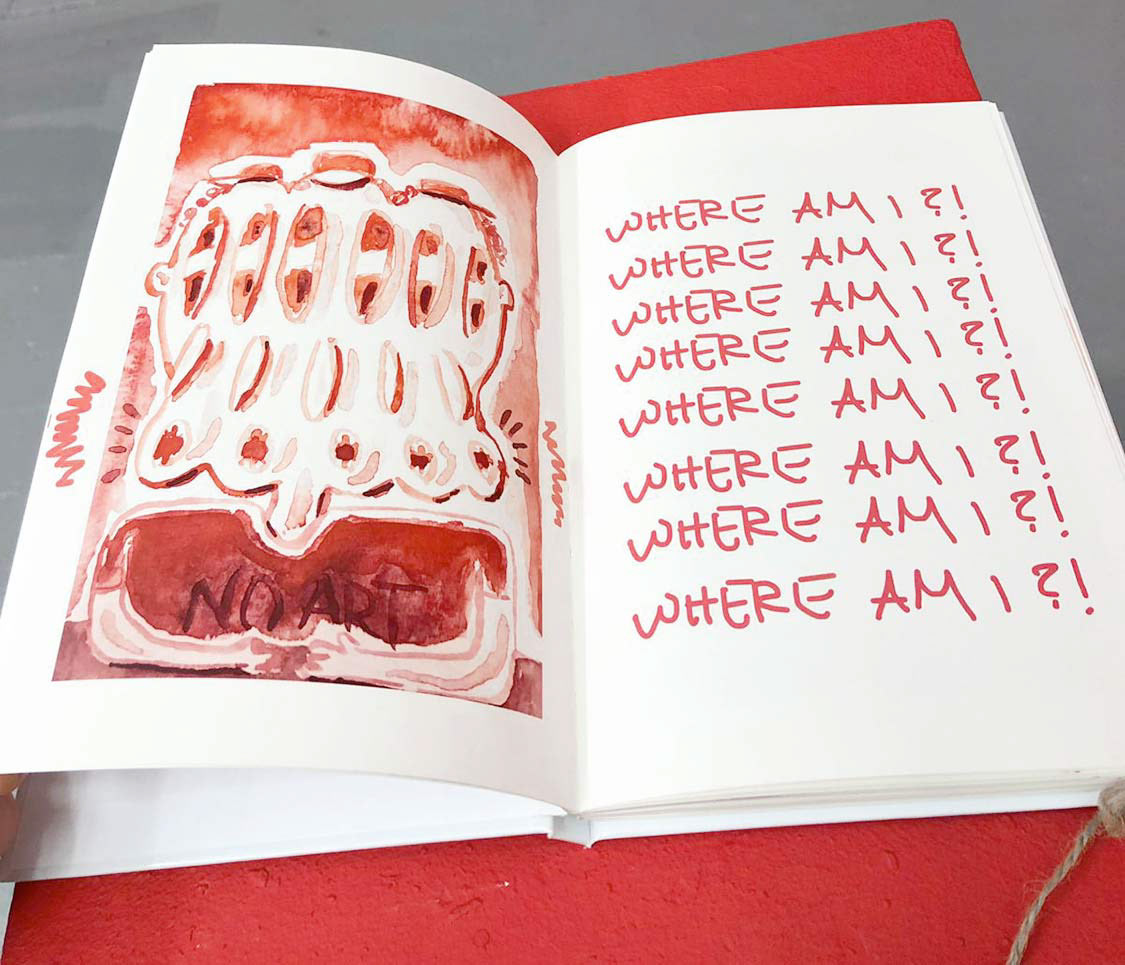 NO ART
WHERE AM I ?!
WHERE AM I ?!
WHERE AM I ?!
WHERE AM I ?!
WHERE AM I ?!
WHERE AM I ?!
WHERE AM I ?!
WHERE AM I ?!